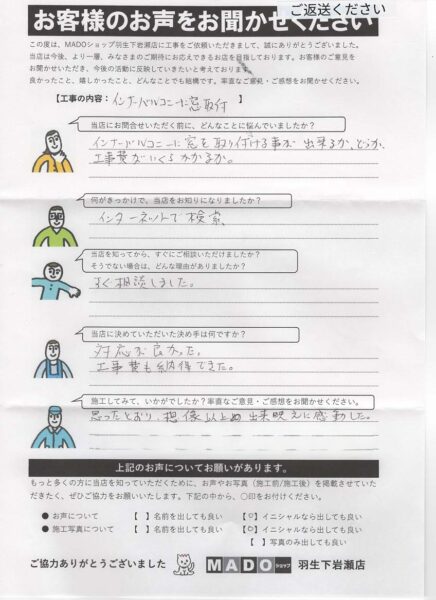 ご返送ください
お客様のお声をお聞かせください
この度は、MADOショップ羽生下岩瀬店に工事をご依頼いただきまして、誠にありがとうございました。
当店は今後、より一層、みなさまのご期待にお応えできるお店を目指しております。お客様のご意見を
お聞かせいただき、今後の活動に反映していきたいと考えております。
良かったこと、嬉しかったこと、どんなことでも結構です。率直なご意見・ご感想をお聞かせください。
【工事の内容：インナーバルコニーに窓取付 】
当店にお問合せいただく前に、どんなことに悩んでいましたか？
インナーバルコニーに窓を取り付ける事が出来るか、どうか、
工事費がいくらかかるか。
何がきっかけで、当店をお知りになりましたか？
インターネットで検索、
当店を知ってから、すぐにご相談いただけましたか？
そうでない場合は、どんな理由がありましたか？
すぐ相談しました。
当店に決めていただいた決め手は何ですか？
対応が良かった。
工事費も納得できた。
施工してみて、いかがでしたか？率直なご意見・ご感想をお聞かせください。
思ったとおり、想像以上の出来映えに感動した。
上記のお声についてお願いがあります。
もっと多くの方に当店を知っていただくために、お声やお写真（施工前/施工後）を掲載させていた
だきたく、ぜひご協力をお願いいたします。下記の中から、○印をお付けください。
● お声について 【 】名前を出しても良い 【○】イニシャルなら出しても良い
● 施工写真について 【 】名前を出しても良い 【○】イニシャルなら出しても良い
【 】写真のみ出しても良い
ご協力ありがとうございました MADOショップ 羽生下岩瀬店